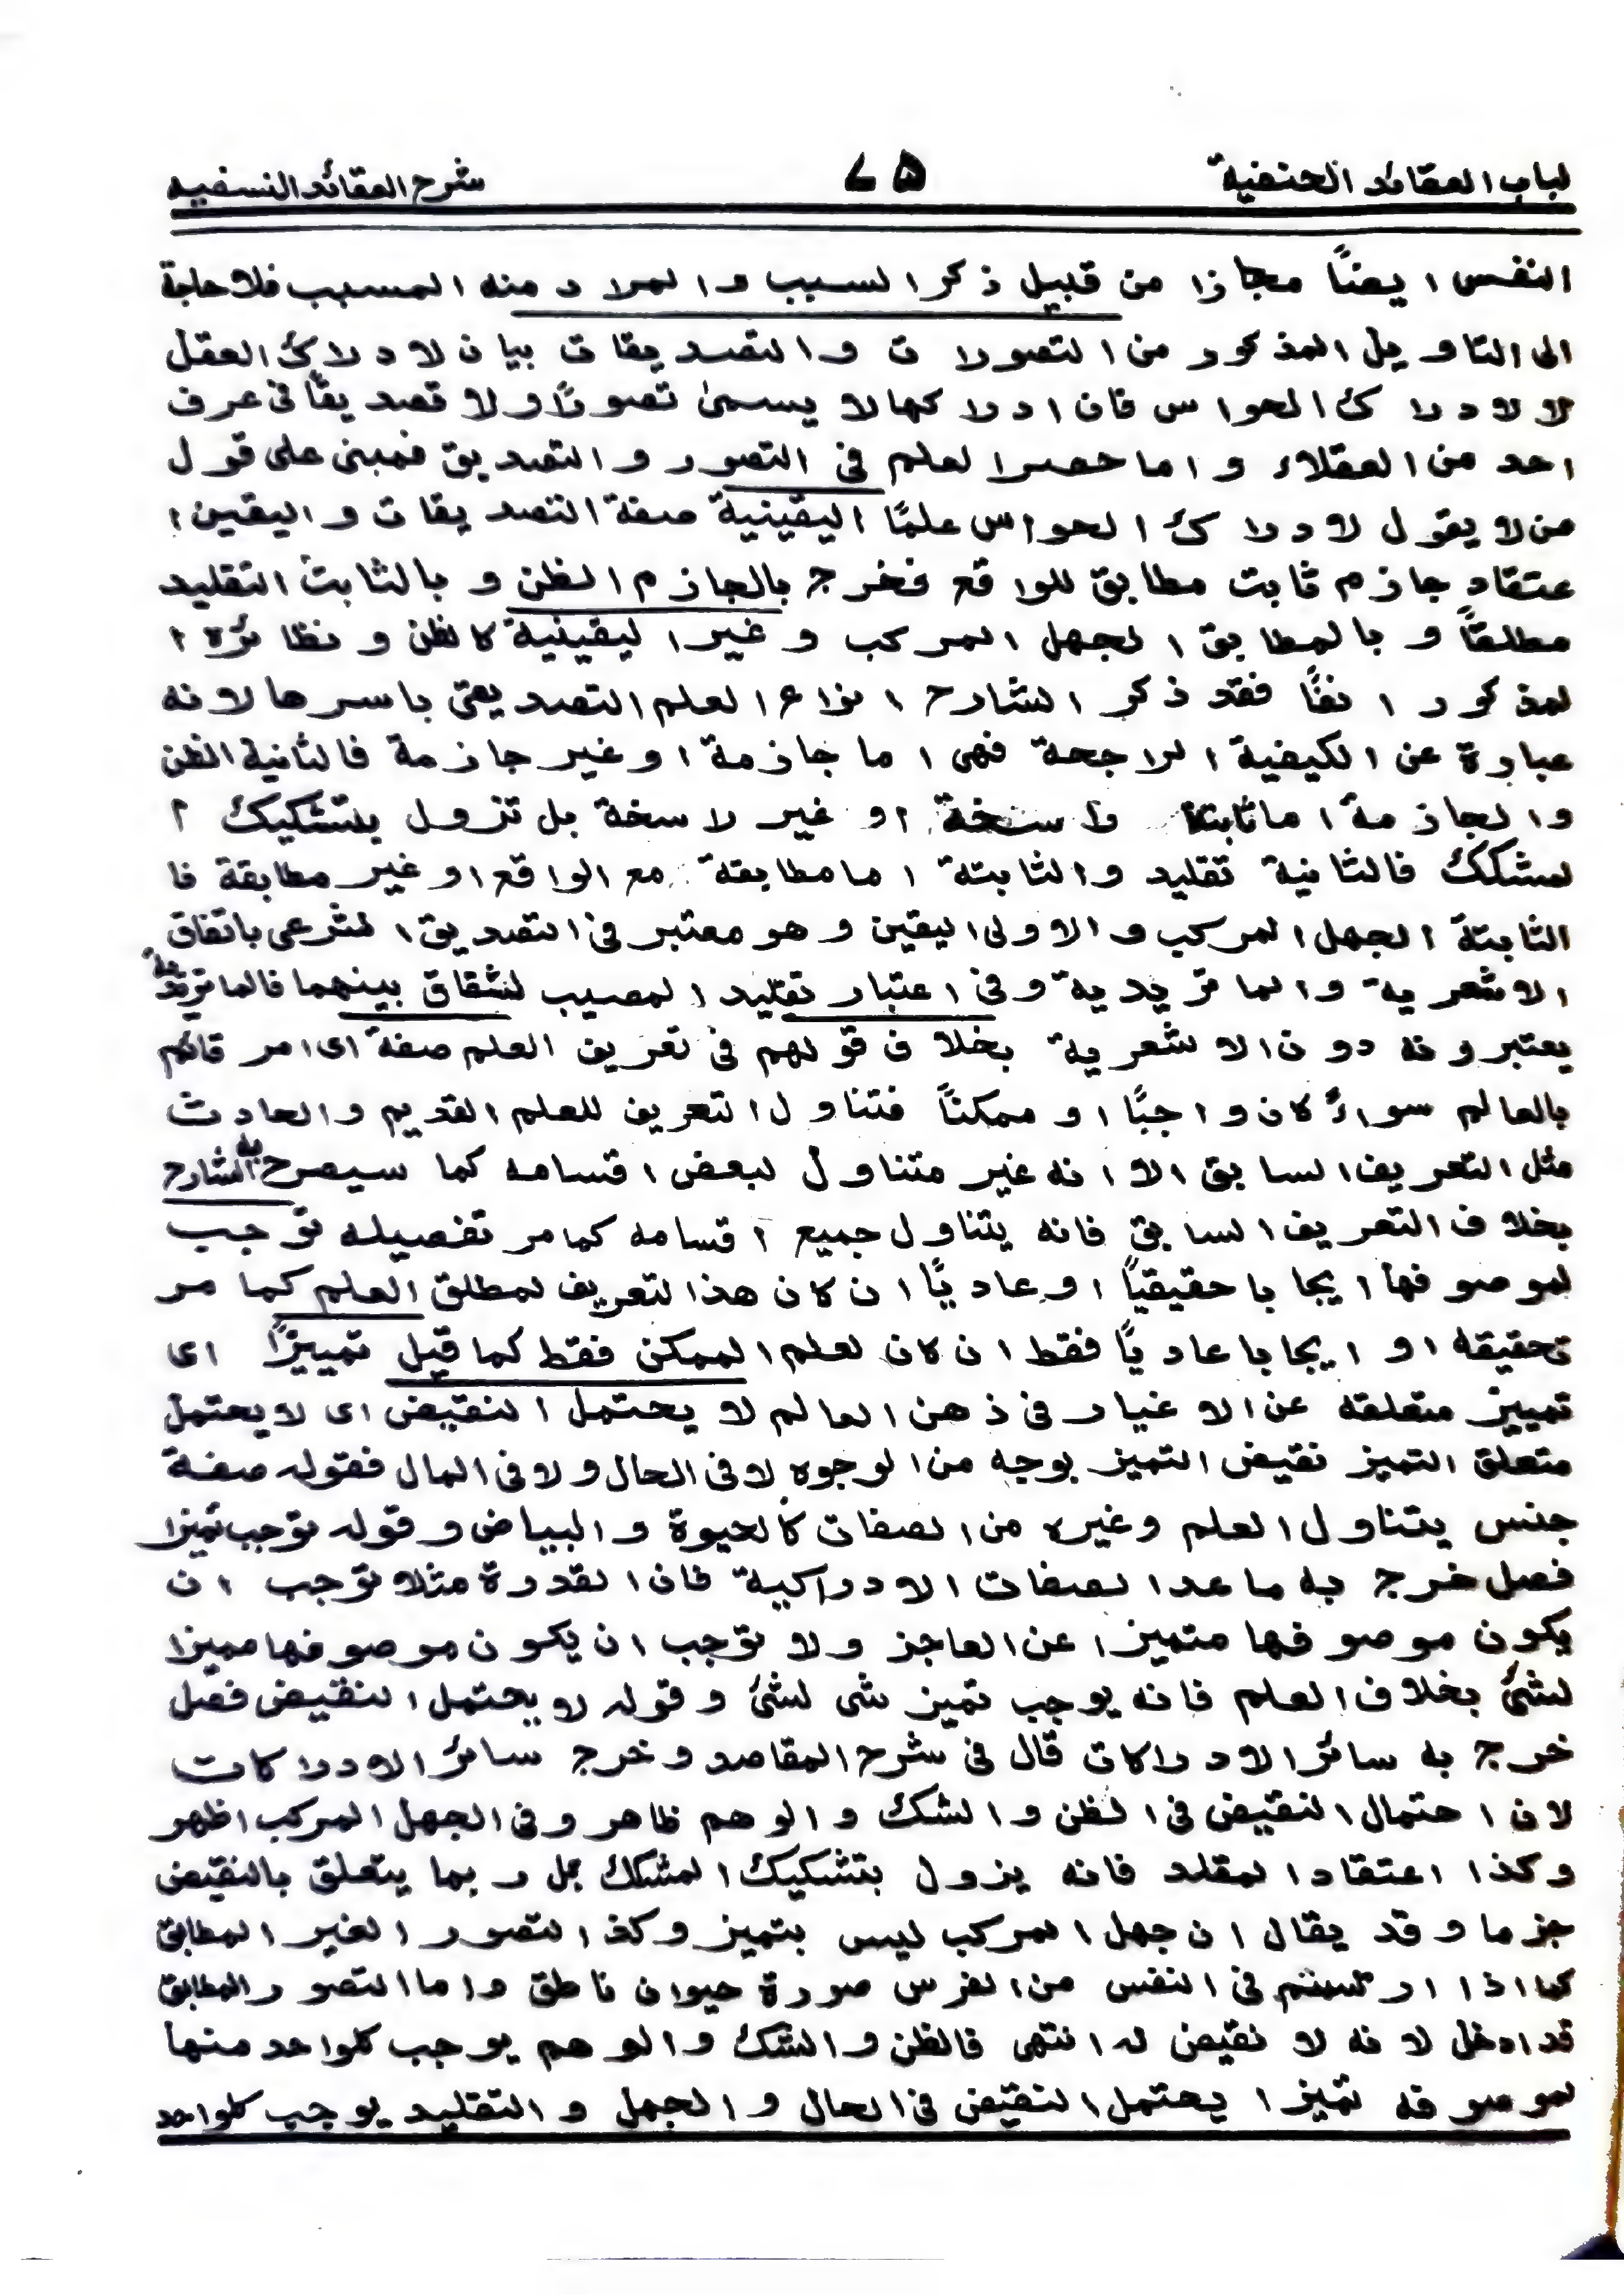 لباب العقائد الحنفية ۷۵ شرح العقائد النسفيه
النفس ايضاً مجازا من قبيل ذكر السبب والمراد منه المسبب فلا حاجة
الى التاويل المذكور من التصورات والتصديقات بيان لادراك العقل
لا لادراك الحواس فان ادراكها لا يسمى تصورًا ولا تصديقًا في عرف
احد من العقلاء واما حصر العلم في التصور والتصديق فمبنى على قول
من لا يقول لادراك الحواس علمًا اليقينية صفة التصديقات واليقين ا
عتقاد جازم ثابت مطابق للواقع فخرج بالجازم الظن وبالثابت التقليد
مطلقاً وبالمطابق الجهل المركب وغير اليقينية كالظن ونظائره ا
لمذكور انفًا فقد ذكر الشارح انواع العلم التصديقى باسرها لانه
عبارة عن الكيفية الراجحة فهى اما جازمة او غير جازمة فالثانية الظن
والجازمة اما ثابتة راسخة او غير راسخة بل تزول بتشكيك ا
لمشكك فالثانية تقليد والثابتة اما مطابقة مع الواقع او غير مطابقة فا
الثابتة الجهل المركب والاولى اليقين وهو معتبر في التصديق الشرعى باتفاق
الاشعرية والماتريدية وفى اعتبار تقليد المصيب لشقاق بينهما فالماتريدية
يعتبرونه دون الاشعرية بخلاف قولهم في تعريف العلم صفة اى امر قائم
بالعالم سواءً كان واجبًا او ممكناً فتناول التعريف للعلم القديم والحادث
مثل التعريف السابق الا انه غير متناول لبعض اقسامه كما سيصرح به الشارح
بخلاف التعريف السابق فانه يتناول جميع اقسامه كما مر تفصيله توجب
لموصوفها ايجابا حقيقياً او عاديًا ان كان هذا التعريف لمطلق العلم كما مر
تحقيقه او ايجابا عاديًا فقط ان كان لعلم الممكن فقط كما قيل تمييزًا اى
تمييز متعلقه عن الاغيار في ذهن العالم لا يحتمل النقيض اى لا يحتمل
متعلق التميز نقيض التميز بوجه من الوجوه لا فى الحال ولا فى المال فقوله صفة
جنس يتناول العلم وغيره من الصفات كالحيوة والبياض وقوله توجب تميزا
فصل خرج به ما عدا الصفات الادراكية فان القدرة مثلا توجب ان
يكون موصوفها متميزا عن العاجز ولا توجب ان يكون موصوفها مميزا
لشئ بخلاف العلم فانه يوجب تميز شى لشئ وقوله لا يحتمل النقيض فصل
خرج به سائر الادراكات قال في شرح المقاصد وخرج سائر الادراكات
لان احتمال النقيض في الظن والشك والوهم ظاهر وفى الجهل المركب اظهر
وكذا اعتقاد المقلد فانه يزول بتشكيك المشكك بل ربما يتعلق بالنقيض
جزما وقد يقال ان جهل المركب ليس بتميز وكذا التصور الغير المطابق
كما اذا ارتسم في النفس من الفرس صورة حيوان ناطق واما التصور المطابق
قد ادخل لانه لا نقيض له انتهى فالظن والشك والوهم يوجب كلواحد منها
لموصوفه تميزا يحتمل النقيض في الحال والجهل والتقليد يوجب كلواحد